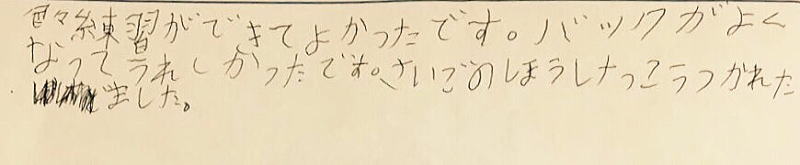 色々練習ができてよかったです。バックがよく
なってうれしかったです。さいごのしほうしけっこうつかれた
ました。